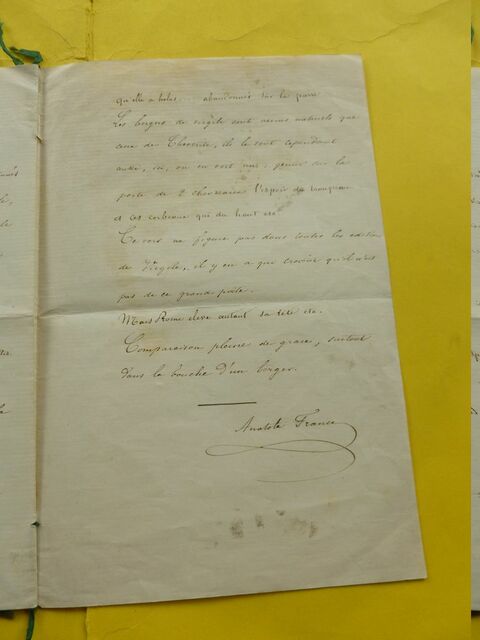 qu'elle a hélas... abandonnés sur la pierre
Les bergers de Virgile sont moins naturels que
ceux de Théocrite, ils le sont cependant
aussi, ici, on en voit un: gémir sur la
perte de 2 chevreaux l'espoir du troupeau
et ces corbeaux qui du haut etc
Ce vers ne figure pas dans toutes les éditions
de Virgile, il y en a que croient qu'il n'est
pas de ce grand poète.
Mais Rome élève autant sa tête etc.
Comparaison pleine de grâce, surtout
dans la bouche d'un berger.
Anatole France